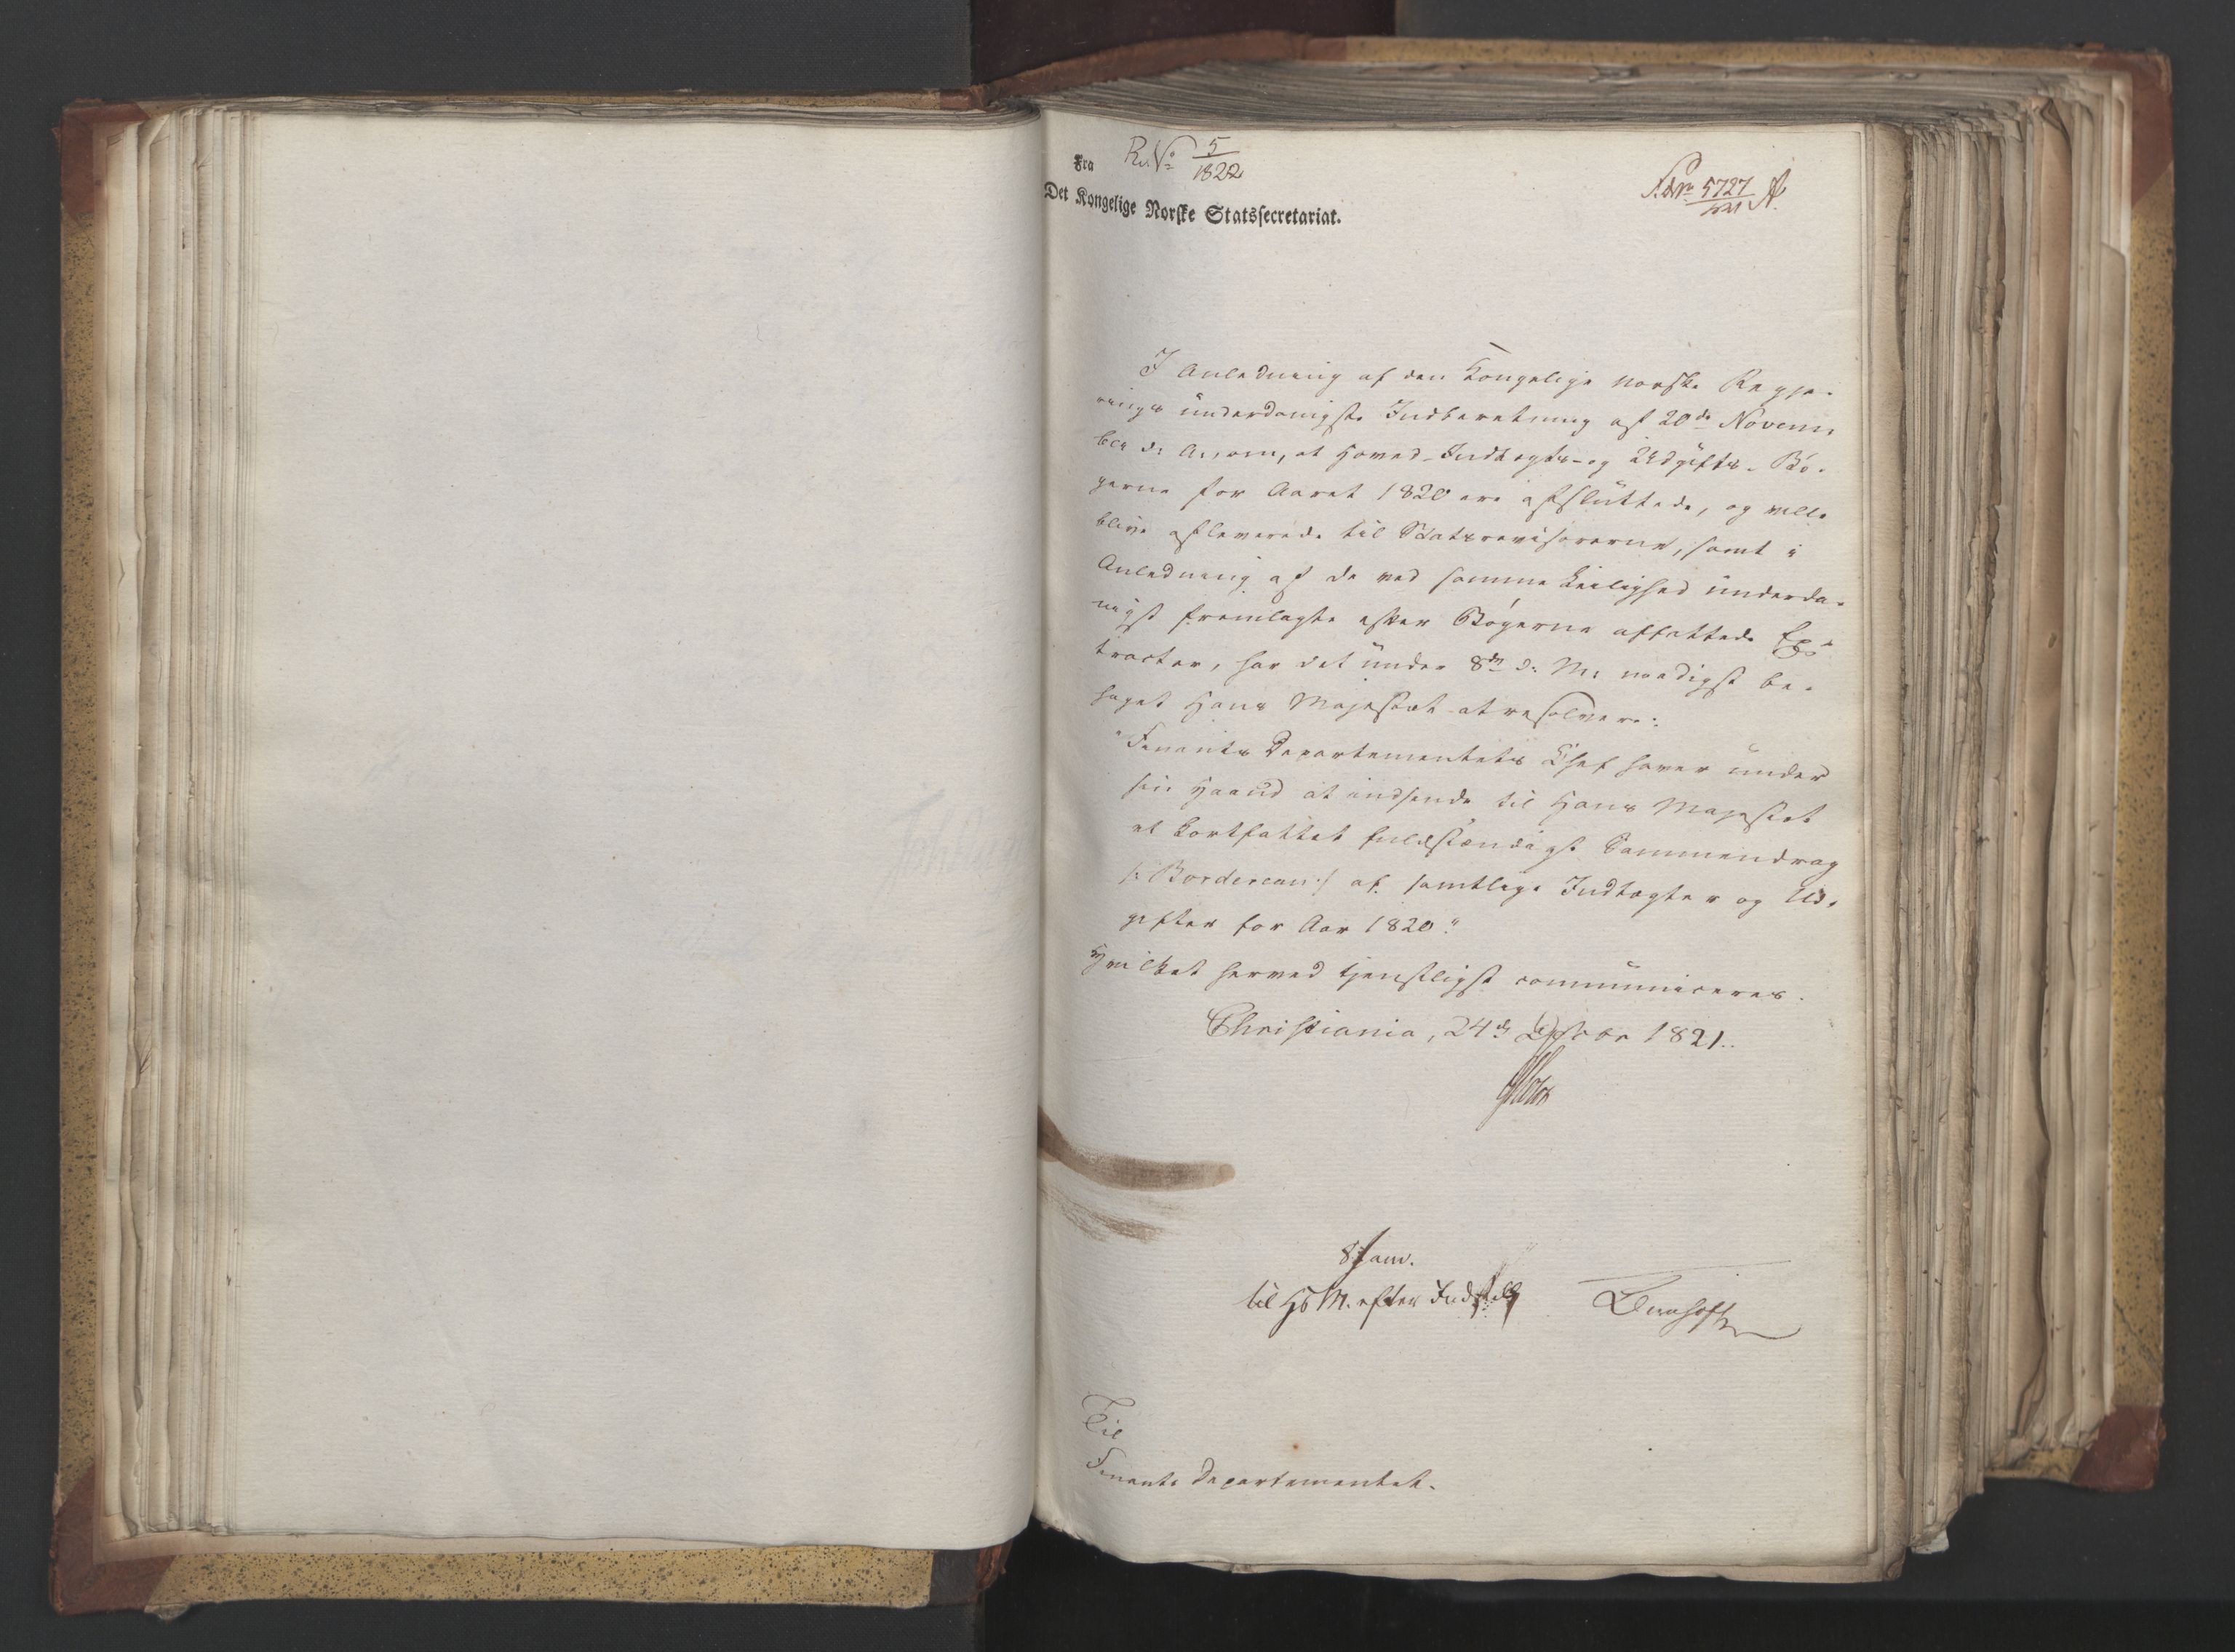 Fra
R. No 5/1822
Det Kongelige Norske Statssecretariat.
5727/1821
I Anledning af den Kongelige norske Regje-
rings underdanigste Indberetning af 20de Novem
ber d: A:, om, at Hoved-Indtægts- og Udgifts-Bø-
gerne for Aaret 1820 ere afsluttede, og ville
blive afleverede til Statsrevisorerne, samt i
Anledning af de ved samme Leilighed underda-
nigst fremlagte efter Bøgerne affattede Ex-
tracter, har det under 8de d: M: naadigst be-
haget Hans Majestæt at resolvere:
"Finants Departementets Chef haver under
sin Haand at indsende til Hans Majestæt
et kortfattet fuldstændigt Sammendrag
/: Bordereau :/ af samtlige Indtægter og Ud-
gifter for Aar 1820."
Hvilket herved tjenstligst communiceres.
Christiania, 24de Decbr 1821.
8 Janr.
til Hs M. efter Indstill
Til
Finants Departementet.